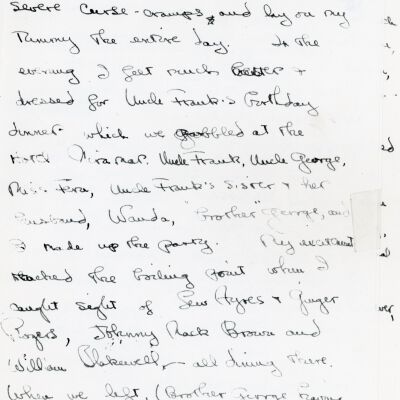 Severe Curse-cramps, and lay on my
Tummy the entire day. In the
evening I feel much better +
dressed for Uncle Frank's birthday
dinner which we gobbled at the
Hotel Miramar. Uncle Frank, Uncle George,
Miss Fera, Uncle Frank's sister + her
husband, Wanda, "Brother" George, and
I made up the party. My excitement
reached the boiling point when I
caught sight of Lew Ayres + Ginger
Rogers, Johnny Mack Brown and
William Blakewell, - all dining there.
When we left, (Brother George having